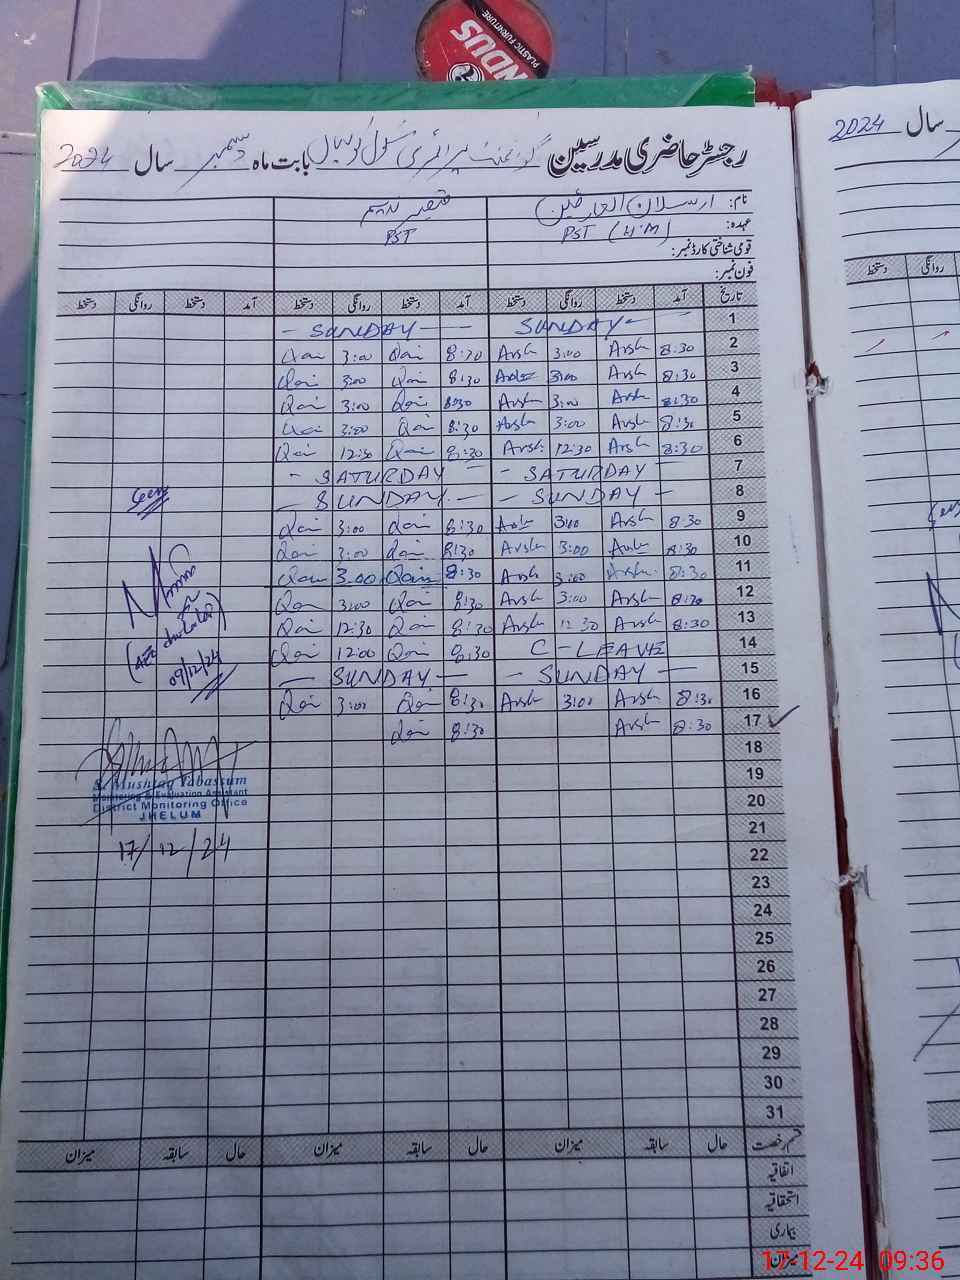 INDUS
PLASTIC FURNITURE
رجسٹر حاضری مدرسین گورنمنٹ پرائمری سکول بابت ماہ دسمبر سال 2024
نام: ارسلان العارفین قیصر ندیم
عہدہ: PST (H.M) PST
قومی شناختی کارڈ نمبر:
فون نمبر:
تاریخ آمد دستخط روانگی دستخط آمد دستخط روانگی دستخط آمد دستخط روانگی دستخط
1 SUNDAY SUNDAY
2 8:30 Arsh 3:00 Arsh 8:30 Qai 3:00 Qai
3 8:30 Arsh 3:00 Arsh 8:30 Qai 3:00 Qai
4 8:30 Arsh 3:00 Arsh 8:30 Qai 3:00 Qai
5 8:30 Arsh 3:00 Arsh 8:30 Qai 3:00 Qai
6 8:30 Arsh 12:30 Arsh 8:30 Qai 12:30 Qai
7 SATURDAY SATURDAY
8 SUNDAY SUNDAY
9 8:30 Arsh 3:00 Arsh 8:30 Qai 3:00 Qai
10 8:30 Arsh 3:00 Arsh 8:30 Qai 3:00 Qai
11 8:30 Arsh 3:00 Arsh 8:30 Qai 3:00 Qai
12 8:30 Arsh 3:00 Arsh 8:30 Qai 3:00 Qai
13 8:30 Arsh 12:30 Arsh 8:30 Qai 12:30 Qai
14 C-LEAVE 8:30 Qai 12:00 Qai
15 SUNDAY SUNDAY
16 8:30 Arsh 3:00 Arsh 8:30 Qai 3:00 Qai
17 8:30 Arsh 8:30 Qai
18
19
20
21
22
23
24
25
26
27
28
29
30
31
Seen
09/12/24
S. Mushtaq Tabassum
Monitoring & Evaluation Assistant
District Monitoring Office
JHELUM
17/12/24
قسم رخصت حال سابقہ میزان حال سابقہ میزان حال سابقہ میزان
اتفاقیہ
استحقاقیہ
بیماری
میزان
سال 2024
روانگی دستخط
17-12-24 09:36